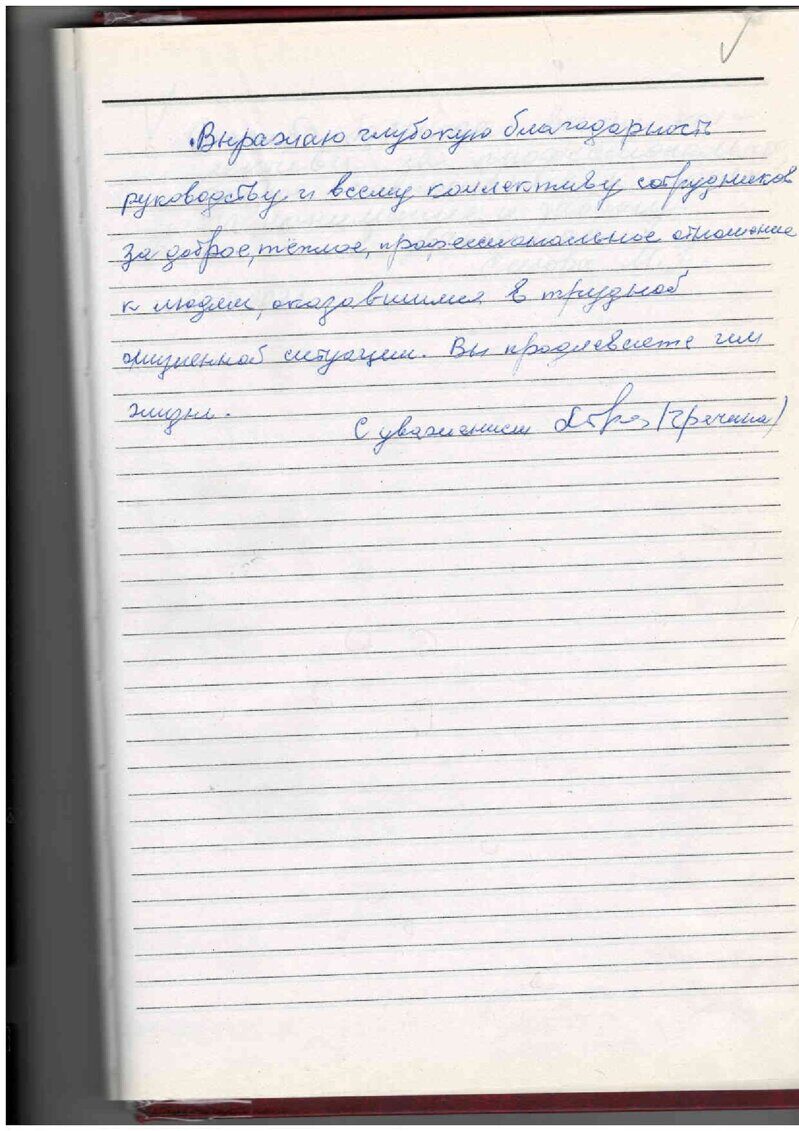 Выражаю глубокую благодарность
руководству и всему коллективу сотрудников
за доброе, теплое, профессиональное отношение
к людям, оказавшимся в трудной
жизненной ситуации. Вы продлеваете им
жизнь.
С уважением